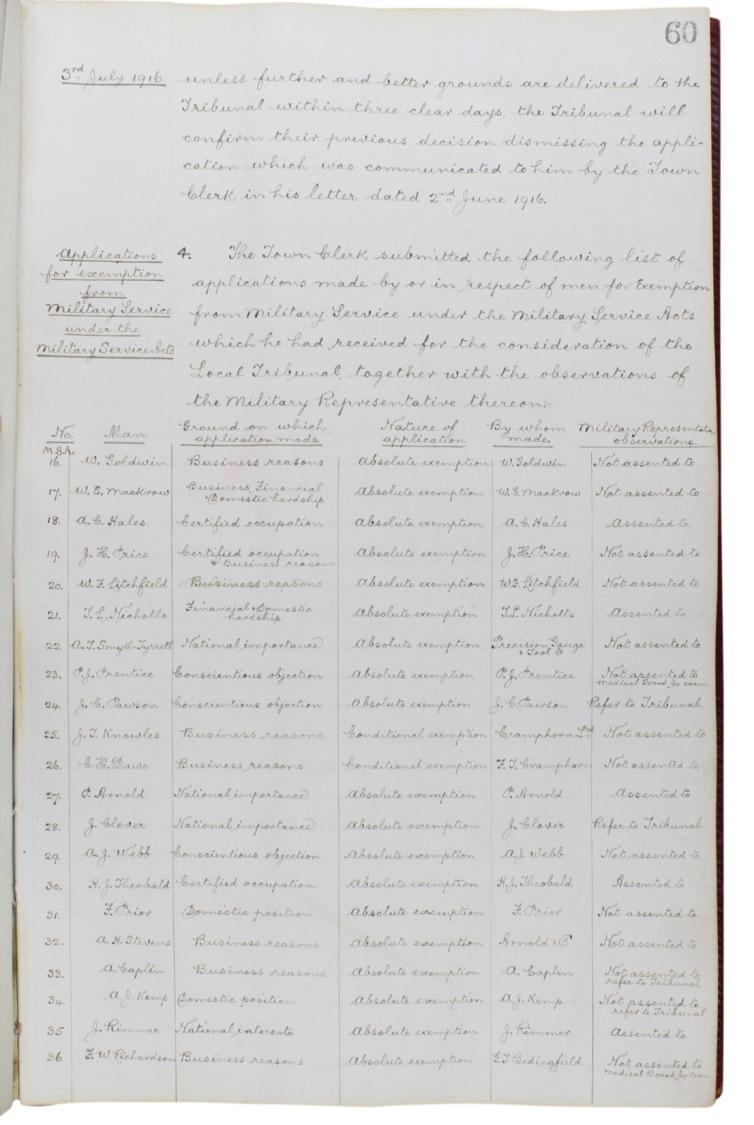 60
3rd July 1916. unless further and better grounds are delivered to the
Tribunal within three clear days, the Tribunal will
confirm their previous decision dismissing the appli-
cation which was communicated to him by the Town
Clerk in his letter dated 2nd June 1916.
Applications
for exemption
from
Military Service
under the
Military Service Acts
4. The Town Clerk submitted the following list of
applications made by or in respect of men for Exemption
from Military Service under the Military Service Acts
which he had received for the consideration of the
Local Tribunal, together with the observations of
the Military Representative thereon:-
No. Man Ground on which application made. Nature of application. By whom made. Military Representative observations.
M.S.A.
16. W. Goldwin Business reasons Absolute exemption W. Goldwin Not assented to
17. W. E. Mackrow Business, Financial Domestic hardship Absolute exemption W. E. Mackrow Not assented to
18. A. C. Hales. Certified occupation Absolute exemption A. C. Hales Assented to
19. J. H. Price Certified occupation & Business reasons Absolute exemption J. H. Price Not assented to
20. W. F. Litchfield Business reasons Absolute exemption W. F. Litchfield Not assented to
21. T. L. Nicholls Financial & Domestic hardship. Absolute exemption T. L. Nicholls Assented to
22. A. T. Smyth-Tyrrell National importance Absolute exemption Precision Gauge & Tool Co Not assented to
23. P. J. Prentice Conscientious objection Absolute exemption P. J. Prentice Not assented to Medical Board for exam.
24. J. C. Pawson Conscientious objection Absolute exemption J. C. Pawson Refer to Tribunal.
25. J. T. Knowles Business reasons Conditional exemption Cramphorn Ltd Not assented to
26. C. H. Dawe Business reasons Conditional exemption F. T. Cramphorn Not assented to
27. P. Arnold National importance Absolute exemption P. Arnold Assented to
28. J. Clover National importance Absolute exemption J. Clover Refer to Tribunal
29. A. J. Webb Conscientious objection Absolute exemption A. J. Webb Not assented to
30. H. J. Theobald Certified occupation Absolute exemption H. J. Theobald Assented to
31. F. Prior Domestic position Absolute exemption F. Prior Not assented to
32. A. H. Stevens Business reasons Absolute exemption Arnold & Not assented to
33. A. Caplin Business reasons Absolute exemption A. Caplin Not assented to refer to Tribunal
34. A. J. Kemp Domestic position Absolute exemption A. J. Kemp. Not assented to refer to Tribunal
35 J. Rimmer National interests Absolute exemption J. Rimmer Assented to
36 F. W. Richardson Business reasons Absolute exemption G. T. Bedingfield Not assented to Medical Board for Exam